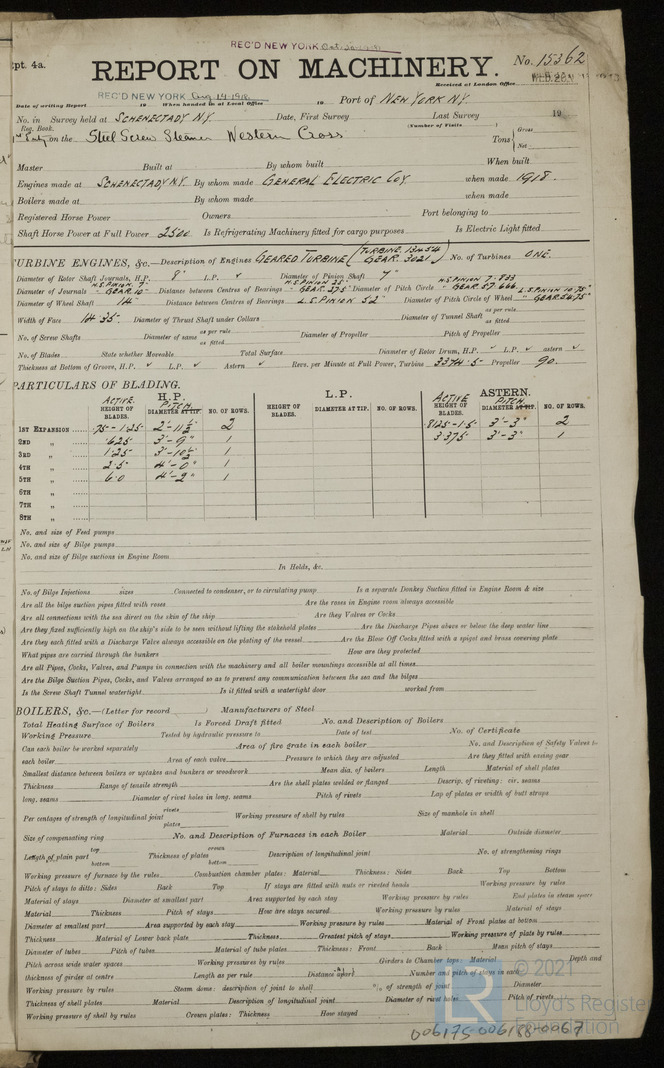 REC'D NEW YORK
pt. 4a.
REPORT ON MACHINERY.
No. 15362
Received at London Office
REC'D NEW YORK Aug 14 1918
Date of writing Report 19 When handed in at Local Office 19 Port of NEW YORK N.Y.
No. in Survey held at SCHENECTADY N.Y. Date, First Survey Last Survey 19
Reg. Book. (Number of Visits
on the Steel Screw Steamer Western Cross Tons Gross Net
Master Built at By whom built When built
Engines made at SCHENECTADY N.Y. By whom made GENERAL ELECTRIC COY. when made 1918.
Boilers made at By whom made when made
Registered Horse Power Owners Port belonging to
Shaft Horse Power at Full Power 2500 Is Refrigerating Machinery fitted for cargo purposes Is Electric Light fitted
TURBINE ENGINES, &c.—Description of Engines GEARED TURBINE (TURBINE. 13454 GEAR. 3021) No. of Turbines ONE.
Diameter of Rotor Shaft Journals, H.P. 8" L.P. ✓ Diameter of Pinion Shaft 7"
H.S. PINION. 7" H.S. PINION 25" H.S. PINION 7.833
Diameter of Journals " GEAR. 10" Distance between Centres of Bearings " GEAR. 27.5 Diameter of Pitch Circle " GEAR. 57.666 L.S. PINION 10.75"
Diameter of Wheel Shaft 14" Distance between Centres of Bearings L.S. PINION 52" Diameter of Pitch Circle of Wheel " GEAR 54.75"
Width of Face 14.35 Diameter of Thrust Shaft under Collars Diameter of Tunnel Shaft as per rule as fitted
No. of Screw Shafts Diameter of same as per rule as fitted Diameter of Propeller Pitch of Propeller
No. of Blades State whether Moveable Total Surface Diameter of Rotor Drum, H.P. ✓ L.P. ✓ astern ✓
Thickness at Bottom of Groove, H.P. ✓ L.P. ✓ Astern ✓ Revs. per Minute at Full Power, Turbine 3374.5 Propeller 90.
PARTICULARS OF BLADING.
H.P. L.P. ASTERN.
ACTIVE HEIGHT OF BLADES. PITCH DIAMETER AT TIP. NO. OF ROWS. HEIGHT OF BLADES. DIAMETER AT TIP. NO. OF ROWS. ACTIVE HEIGHT OF BLADES. PITCH DIAMETER AT TIP. NO. OF ROWS.
1ST EXPANSION .75-1.25 2'-11½" 2 .8125-1.5 3'-3" 2
2ND " .625 3'-9" 1 3.375 3'-3" 1
3RD " 1.25 3'-10½" 1
4TH " 2.5 4'-0" 1
5TH " 6.0 4'-2" 1
6TH "
7TH "
8TH "
No. and size of Feed pumps
No. and size of Bilge pumps
No. and size of Bilge suctions in Engine Room
In Holds, &c.
No. of Bilge Injections sizes Connected to condenser, or to circulating pump Is a separate Donkey Suction fitted in Engine Room & size
Are all the bilge suction pipes fitted with roses Are the roses in Engine room always accessible
Are all connections with the sea direct on the skin of the ship Are they Valves or Cocks
Are they fixed sufficiently high on the ship's side to be seen without lifting the stokehold plates Are the Discharge Pipes above or below the deep water line
Are they each fitted with a Discharge Valve always accessible on the plating of the vessel Are the Blow Off Cocks fitted with a spigot and brass covering plate
What pipes are carried through the bunkers How are they protected
Are all Pipes, Cocks, Valves, and Pumps in connection with the machinery and all boiler mountings accessible at all times
Are the Bilge Suction Pipes, Cocks, and Valves arranged so as to prevent any communication between the sea and the bilges
Is the Screw Shaft Tunnel watertight Is it fitted with a watertight door worked from
BOILERS, &c.—(Letter for record ) Manufacturers of Steel
Total Heating Surface of Boilers Is Forced Draft fitted No. and Description of Boilers
Working Pressure Tested by hydraulic pressure to Date of test No. of Certificate
Can each boiler be worked separately Area of fire grate in each boiler No. and Description of Safety Valves to
each boiler Area of each valve Pressure to which they are adjusted Are they fitted with easing gear
Smallest distance between boilers or uptakes and bunkers or woodwork Mean dia. of boilers Length Material of shell plates
Thickness Range of tensile strength Are the shell plates welded or flanged Descrip. of riveting: cir. seams
long. seams Diameter of rivet holes in long. seams Pitch of rivets Lap of plates or width of butt straps
Per centages of strength of longitudinal joint rivets plates Working pressure of shell by rules Size of manhole in shell
Size of compensating ring No. and Description of Furnaces in each Boiler Material Outside diameter
Length of plain part top bottom Thickness of plates crown bottom Description of longitudinal joint No. of strengthening rings
Working pressure of furnace by the rules Combustion chamber plates: Material Thickness: Sides Back Top Bottom
Pitch of stays to ditto: Sides Back Top If stays are fitted with nuts or riveted heads Working pressure by rules
Material of stays Diameter at smallest part Area supported by each stay Working pressure by rules End plates in steam space
Material Thickness Pitch of stays How are stays secured Working pressure by rules Material of stays
Diameter at smallest part Area supported by each stay Working pressure by rules Material of Front plates at bottom
Thickness Material of Lower back plate Thickness Greatest pitch of stays Working pressure of plate by rules
Diameter of tubes Pitch of tubes Material of tube plates Thickness: Front Back Mean pitch of stays
Pitch across wide water spaces Working pressures by rules Girders to Chamber tops: Material Depth and
thickness of girder at centre Length as per rule Distance apart Number and pitch of stays in each
Working pressure by rules Steam dome: description of joint to shell % of strength of joint Diameter
Thickness of shell plates Material Description of longitudinal joint Diameter of rivet holes Pitch of rivets
Working pressure of shell by rules Crown plates: Thickness How stayed
© 2021
LR Lloyd's Register Foundation
006175-006188-0067